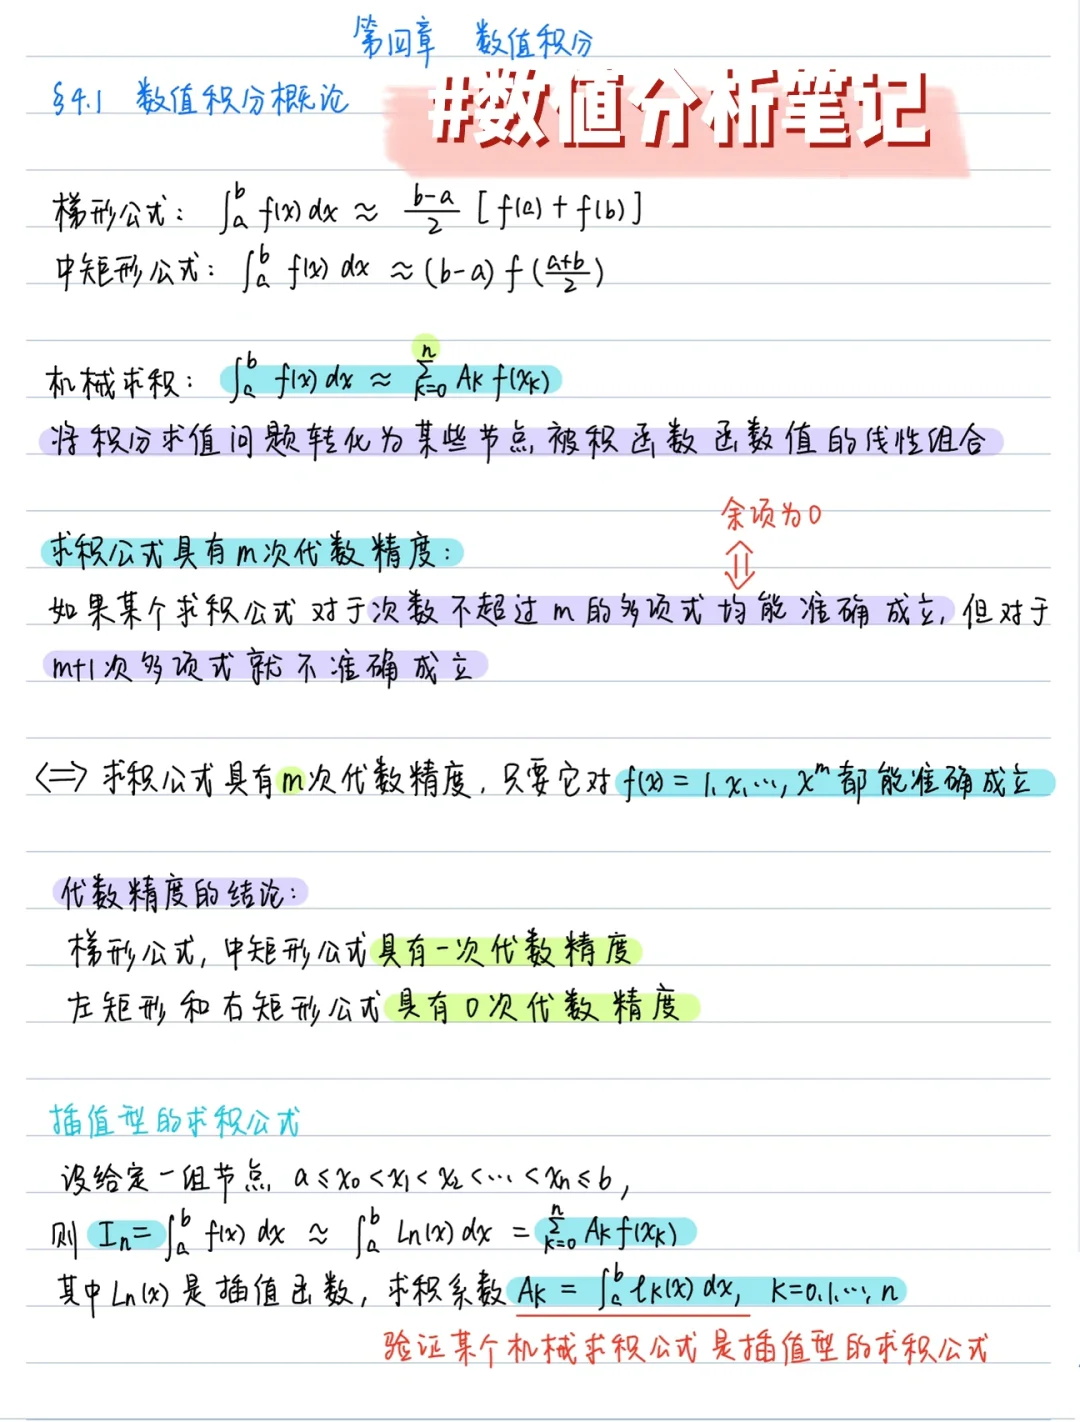 第四章 数值积分
§4.1 数值积分概论
#数值分析笔记
梯形公式: ∫_a^b f(x) dx ≈ (b-a)/2 [f(a) + f(b)]
中矩形公式: ∫_a^b f(x) dx ≈ (b-a) f((a+b)/2)
机械求积: ∫_a^b f(x) dx ≈ Σ_{k=0}^n A_k f(x_k)
将积分求值问题转化为某些节点被积函数函数值的线性组合
余项为0
⇕
求积公式具有m次代数精度:
如果某个求积公式对于次数不超过m的多项式均能准确成立,但对于
m+1次多项式就不准确成立
⟺ 求积公式具有m次代数精度,只要它对 f(x) = 1, x, …, x^m 都能准确成立
代数精度的结论:
梯形公式, 中矩形公式具有一次代数精度
左矩形和右矩形公式具有0次代数精度
插值型的求积公式
设给定一组节点 a ≤ x_0 < x_1 < x_2 < … < x_n ≤ b,
则 I_n = ∫_a^b f(x) dx ≈ ∫_a^b L_n(x) dx = Σ_{k=0}^n A_k f(x_k)
其中 L_n(x) 是插值函数, 求积系数 A_k = ∫_a^b ℓ_k(x) dx, k=0,1,…,n
验证某个机械求积公式是插值型的求积公式